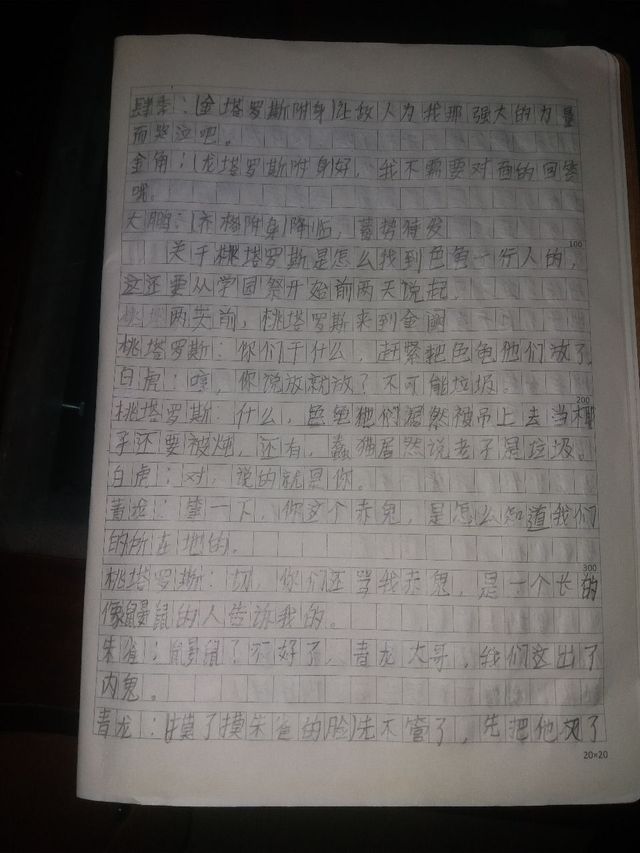 肆季：(金塔罗斯附身)让敌人为我那强大的力量
而哭泣吧。
金角：(龙塔罗斯附身)好，我不需要对面的回答
哦。
大鹏：(附身)降临，蓄势待发
100
关于桃塔罗斯是怎么找到色角一行人的，
这还要从学园祭开始前两天说起，
两天前，桃塔罗斯来到金阁
桃塔罗斯：你们干什么，赶紧把色角他们放了
白虎：哼，你说放就放？不可能垃圾。
200
桃塔罗斯：什么，他们居然被吊上去当
子还要被炖，还有，蠢猫居然说老子是垃圾。
白虎：对，说的就是你。
青龙：等一下，你这个赤鬼，是怎么知道我们
的所在地的。
300
桃塔罗斯：切，你们还骂我赤鬼，是一个长的
像鼹鼠的人告诉我的。
朱雀：鼹鼠？不好了，青龙大哥，我们这出了
内鬼。
青龙：(摸了摸朱雀的脸)先不管了，先把他灭了
20×20